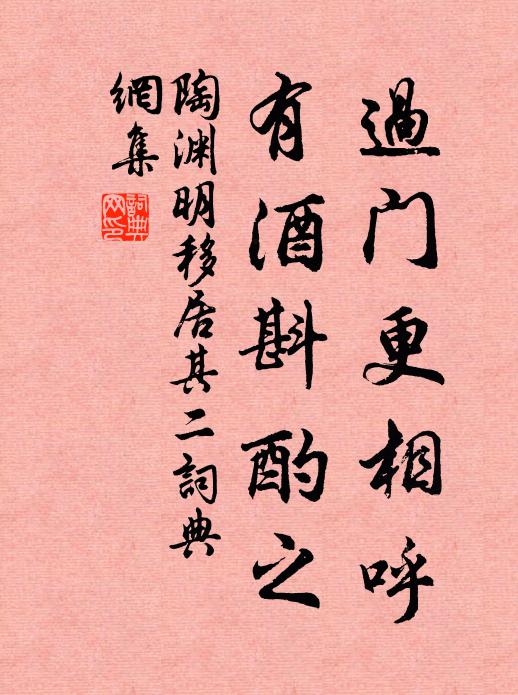 過门更相呼
有酒斟酌之
陶渊明移居其二詞典
網集
詞典
网印